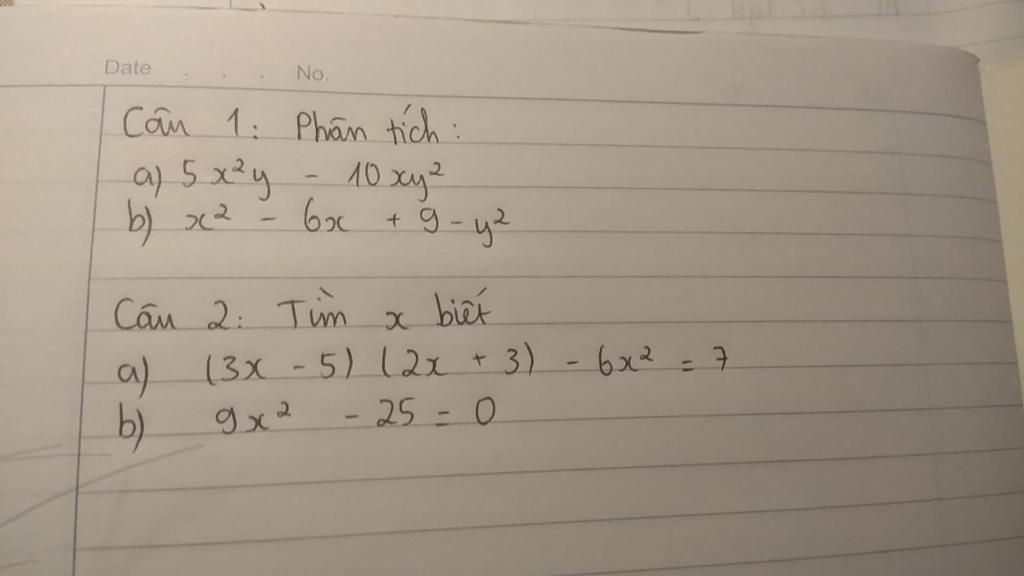 Date . . . No.
Câu 1: Phân tích:
a) 5x²y - 10xy²
b) x² - 6x + 9 - y²
Câu 2: Tìm x biết
a) (3x - 5) (2x + 3) - 6x² = 7
b) 9x² - 25 = 0